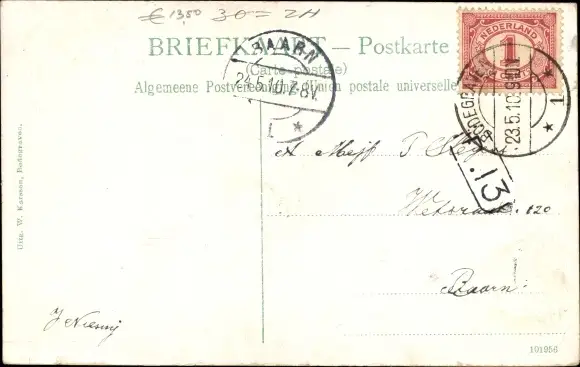 € 1350 30= 2H
BRIEFKAART – Postkarte
(Carte postale)
Algemeene Postvereeniging (Union postale universelle
NEDERLAND
1
CENT
BAARN
24.5.10.7-8V.
1
BODEGRAVEN
23.5.10.9-10N
1
13
Mejf T
120
Baarn.
Uitg. W. Karsson, Bodegraven.
101956